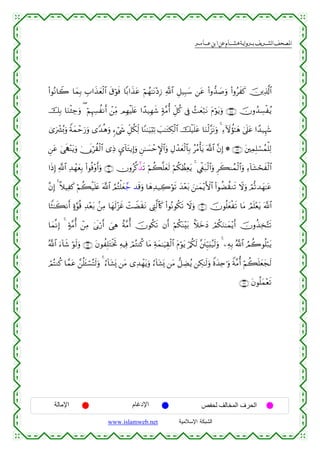 المصحف الشريف برواية هشام عن ابن عامر
ٱلَّذِينَ كَفَرُواْ وَصَدُّواْ عَن سَبِيلِ ٱللَّهِ زِدْنَٰهُمْ عَذَابًا فَوْقَ ٱلْعَذَابِ بِمَا كَانُواْ
يُفْسِدُونَ وَيَوْمَ نَبْعَثُ فِى كُلِّ أُمَّةٍ شَهِيدًا عَلَيْهِم مِّنْ أَنفُسِهِمْ ۖ وَجِئْنَا بِكَ
شَهِيدًا عَلَىٰ هَٰٓؤُلَآءِ ۚ وَنَزَّلْنَا عَلَيْكَ ٱلْكِتَٰبَ تِبْيَٰنًا لِّكُلِّ شَىْءٍ وَهُدًى وَرَحْمَةً وَبُشْرَىٰ
لِلْمُسْلِمِينَ ۞ إِنَّ ٱللَّهَ يَأْمُرُ بِٱلْعَدْلِ وَٱلْإِحْسَٰنِ وَإِيتَآئِ ذِى ٱلْقُرْبَىٰ وَيَنْهَىٰ عَنِ
ٱلْفَحْشَآءِ وَٱلْمُنكَرِ وَٱلْبَغْىِ ۚ يَعِظُكُمْ لَعَلَّكُمْ تَذَّكَّرُونَ وَأَوْفُواْ بِعَهْدِ ٱللَّهِ إِذَا
عَٰهَدتُّمْ وَلَا تَنقُضُواْ ٱلْأَيْمَٰنَ بَعْدَ تَوْكِيدِهَا وَقَد جَّعَلْتُمُ ٱللَّهَ عَلَيْكُمْ كَفِيلًا ۚ إِنَّ
ٱللَّهَ يَعْلَمُ مَا تَفْعَلُونَ وَلَا تَكُونُواْ كَٱلَّتِى نَقَضَتْ غَزْلَهَا مِنۢ بَعْدِ قُوَّةٍ أَنكَٰثًا
تَتَّخِذُونَ أَيْمَٰنَكُمْ دَخَلًۢا بَيْنَكُمْ أَن تَكُونَ أُمَّةٌ هِىَ أَرْبَىٰ مِنْ أُمَّةٍ ۚ إِنَّمَا
يَبْلُوكُمُ ٱللَّهُ بِهِۦ ۚ وَلَيُبَيِّنَنَّ لَكُمْ يَوْمَ ٱلْقِيَٰمَةِ مَا كُنتُمْ فِيهِ تَخْتَلِفُونَ وَلَوْ شَآءَ ٱللَّهُ
لَجَعَلَكُمْ أُمَّةً وَٰحِدَةً وَلَٰكِن يُضِلُّ مَن يَشَآءُ وَيَهْدِى مَن يَشَآءُ ۚ وَلَتُسْـَٔلُنَّ عَمَّا كُنتُمْ
تَعْمَلُونَ
الحرف المخالف لحفص الإدغام الإمالة
الشبكة الإسلامية www.islamweb.net